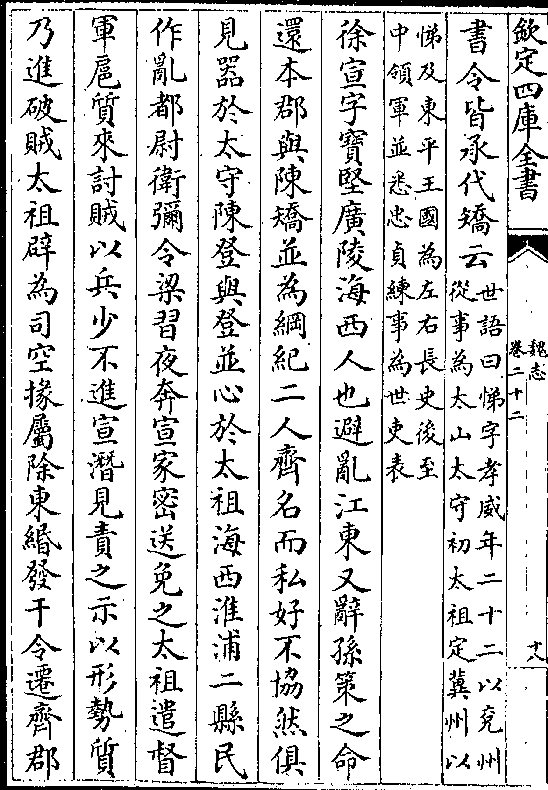 欽定四庫全書
魏志
卷二十二
十八
書令皆承代矯云
世語曰悌字孝威年二十二以兗州
從事為太山太守初太祖定冀州以
悌及東平王國為左右長史後至
中領軍並悉忠貞練事為世吏表
徐宣字寶堅廣陵海西人也避亂江東又辭孫策之命
還本郡與陳矯並為綱紀二人齊名而私好不協然俱
見器於太守陳登與登並心於太祖海西淮浦二縣民
作亂都尉衛彌令梁習夜奔宣家密送免之太祖遣督
軍扈質來討賊以兵少不進宣潛見責之示以形勢質
乃進破賊太祖辟為司空掾屬除東緡發干令遷齊郡